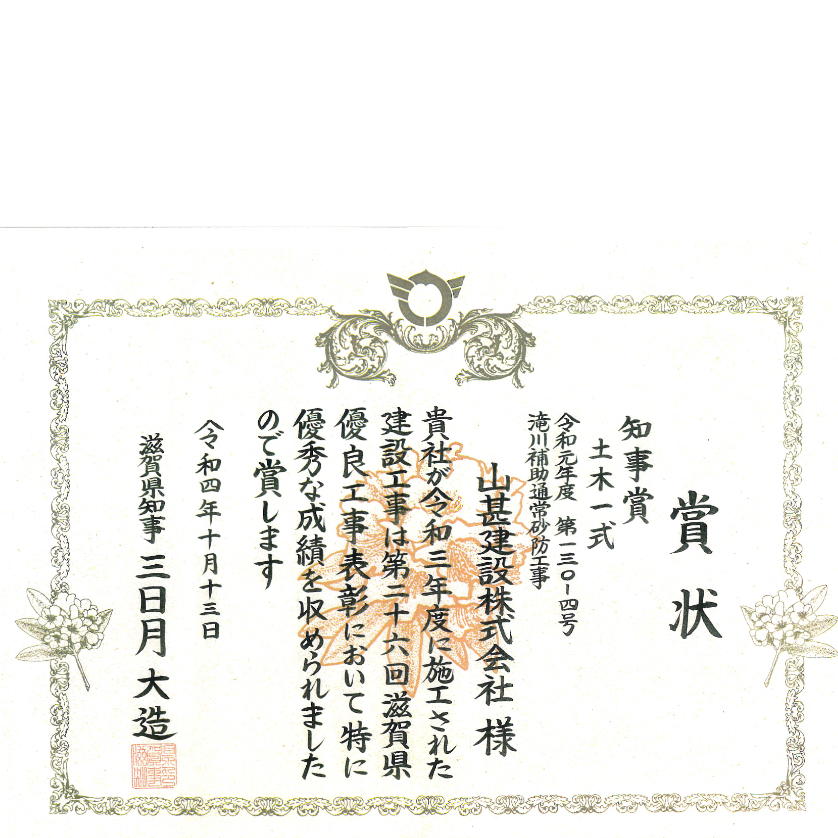 賞状
知事賞
土木一式
令和元年度 第一三〇-四号
滝川補助通常砂防工事
山甚建設株式会社 様
貴社が令和三年度に施工された
建設工事は第二十六回滋賀県
優良工事表彰において特に
優秀な成績を収められました
ので賞します
令和四年十月十三日
滋賀県知事 三日月大造